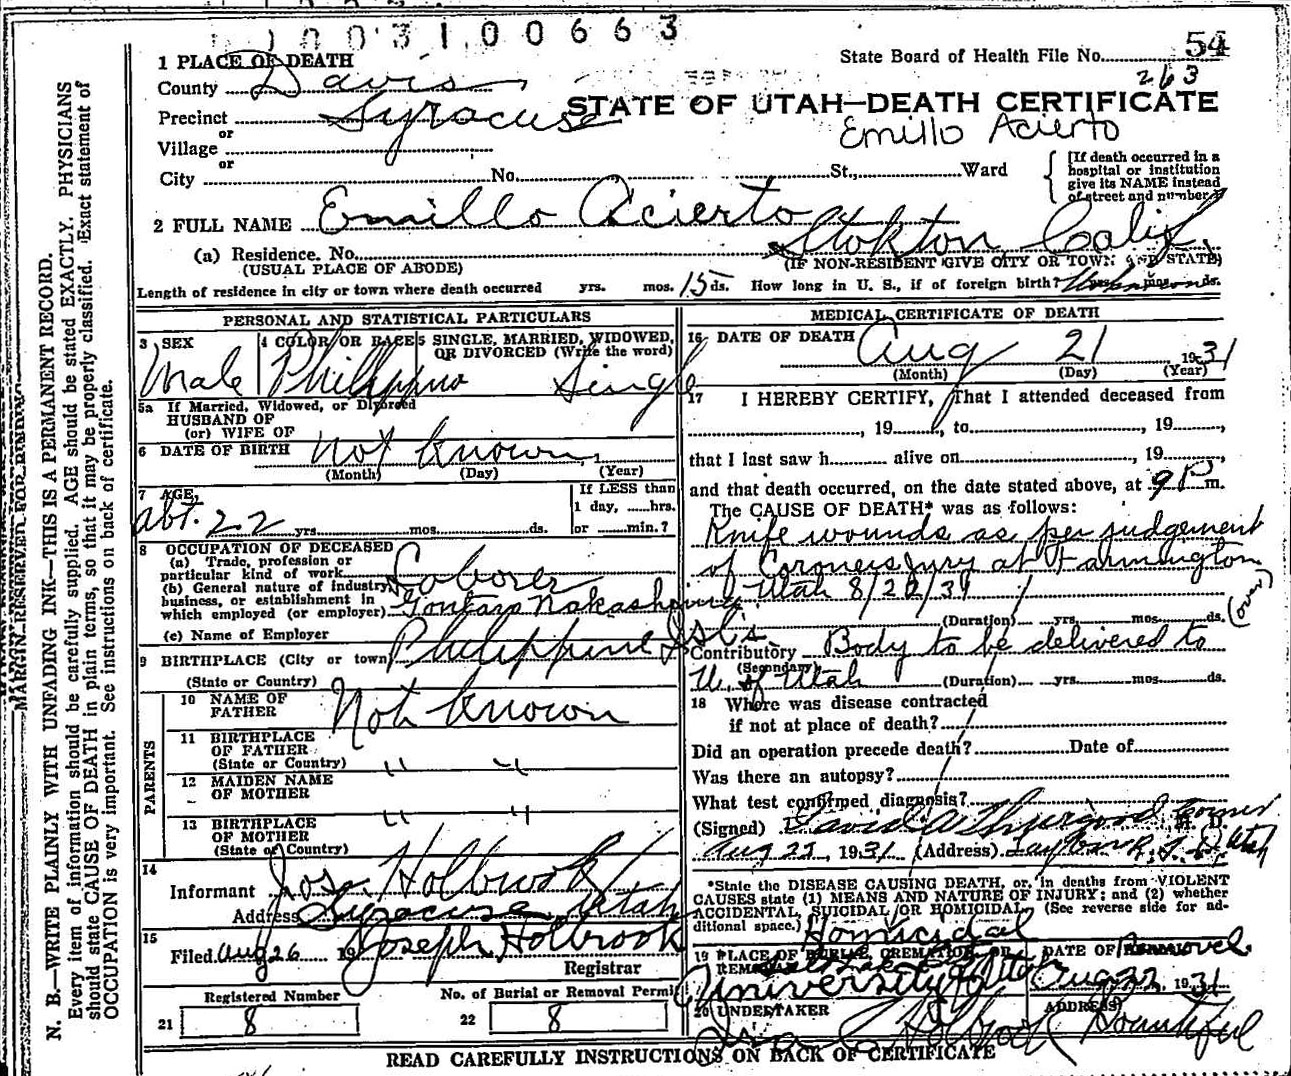 1003100663
State Board of Health File No. 54
263
1 PLACE OF DEATH
County Davis
STATE OF UTAH—DEATH CERTIFICATE
Precinct Syracuse
Emillo Acierto
or
Village
or
City No. St., Ward
[If death occurred in a
hospital or institution
give its NAME instead
of street and number.]
2 FULL NAME Emillo Acierto
(a) Residence. No. Stokton Calif.
(USUAL PLACE OF ABODE) (IF NON-RESIDENT GIVE CITY OR TOWN AND STATE)
Length of residence in city or town where death occurred yrs. mos. 15 ds. How long in U. S., if of foreign birth? yrs. mos. ds.
PERSONAL AND STATISTICAL PARTICULARS
3 SEX 4 COLOR OR RACE 5 SINGLE, MARRIED, WIDOWED,
OR DIVORCED (Write the word)
Male Philippino Single
5a If Married, Widowed, or Divorced
HUSBAND OF
(or) WIFE OF
6 DATE OF BIRTH not known
(Month) (Day) (Year)
7 AGE, If LESS than
1 day, hrs.
abt. 22 yrs. mos. ds. or min.?
8 OCCUPATION OF DECEASED
(a) Trade, profession or
particular kind of work Laborer
(b) General nature of industry,
business, or establishment in
which employed (or employer) Gontaro Nakashema
(c) Name of Employer
9 BIRTHPLACE (City or town) Philippine Isl's
(State or Country)
PARENTS
10 NAME OF
FATHER Not known
11 BIRTHPLACE
OF FATHER
(State or Country) " "
12 MAIDEN NAME
OF MOTHER " "
13 BIRTHPLACE
OF MOTHER
(State or Country) " "
14
Informant Jos. Holbrook
Address Syracuse Utah
15
Filed Aug 26 19 Joseph Holbrook
Registrar
Registered Number No. of Burial or Removal Permit
21 8 22 8
MEDICAL CERTIFICATE OF DEATH
16 DATE OF DEATH Aug 21, 1931
(Month) (Day) (Year)
17 I HEREBY CERTIFY, That I attended deceased from
, 19 , to , 19 ,
that I last saw h alive on , 19 ,
and that death occurred, on the date stated above, at 9 P m.
The CAUSE OF DEATH* was as follows:
Knife wounds as per judgement
of Coroners Jury at Farmington
Utah 8/22/31
(over)
(Duration) yrs. mos. ds.
Contributory Body to be delivered to
(Secondary)
U. of Utah (Duration) yrs. mos. ds.
18 Where was disease contracted
if not at place of death?
Did an operation precede death? Date of
Was there an autopsy?
What test confirmed diagnosis?
(Signed) David A Thurgood Coroner
Aug 22, 1931 (Address) Utah
*State the DISEASE CAUSING DEATH, or, in deaths from VIOLENT
CAUSES state (1) MEANS AND NATURE OF INJURY; and (2) whether
ACCIDENTAL, SUICIDAL OR HOMICIDAL. (See reverse side for ad-
ditional space.) Homicidal
19 PLACE OF BURIAL, CREMATION, OR REMOVAL DATE OF Removal
Salt Lake
University of Utah Aug 22, 1931
20 UNDERTAKER ADDRESS
Holbrook Bountiful
READ CAREFULLY INSTRUCTIONS ON BACK OF CERTIFICATE
MARGIN RESERVED FOR BINDING
N. B.—WRITE PLAINLY WITH UNFADING INK—THIS IS A PERMANENT RECORD.
Every item of information should be carefully supplied. AGE should be stated EXACTLY. PHYSICIANS
should state CAUSE OF DEATH in plain terms, so that it may be properly classified. Exact statement of
OCCUPATION is very important. See instructions on back of certificate.